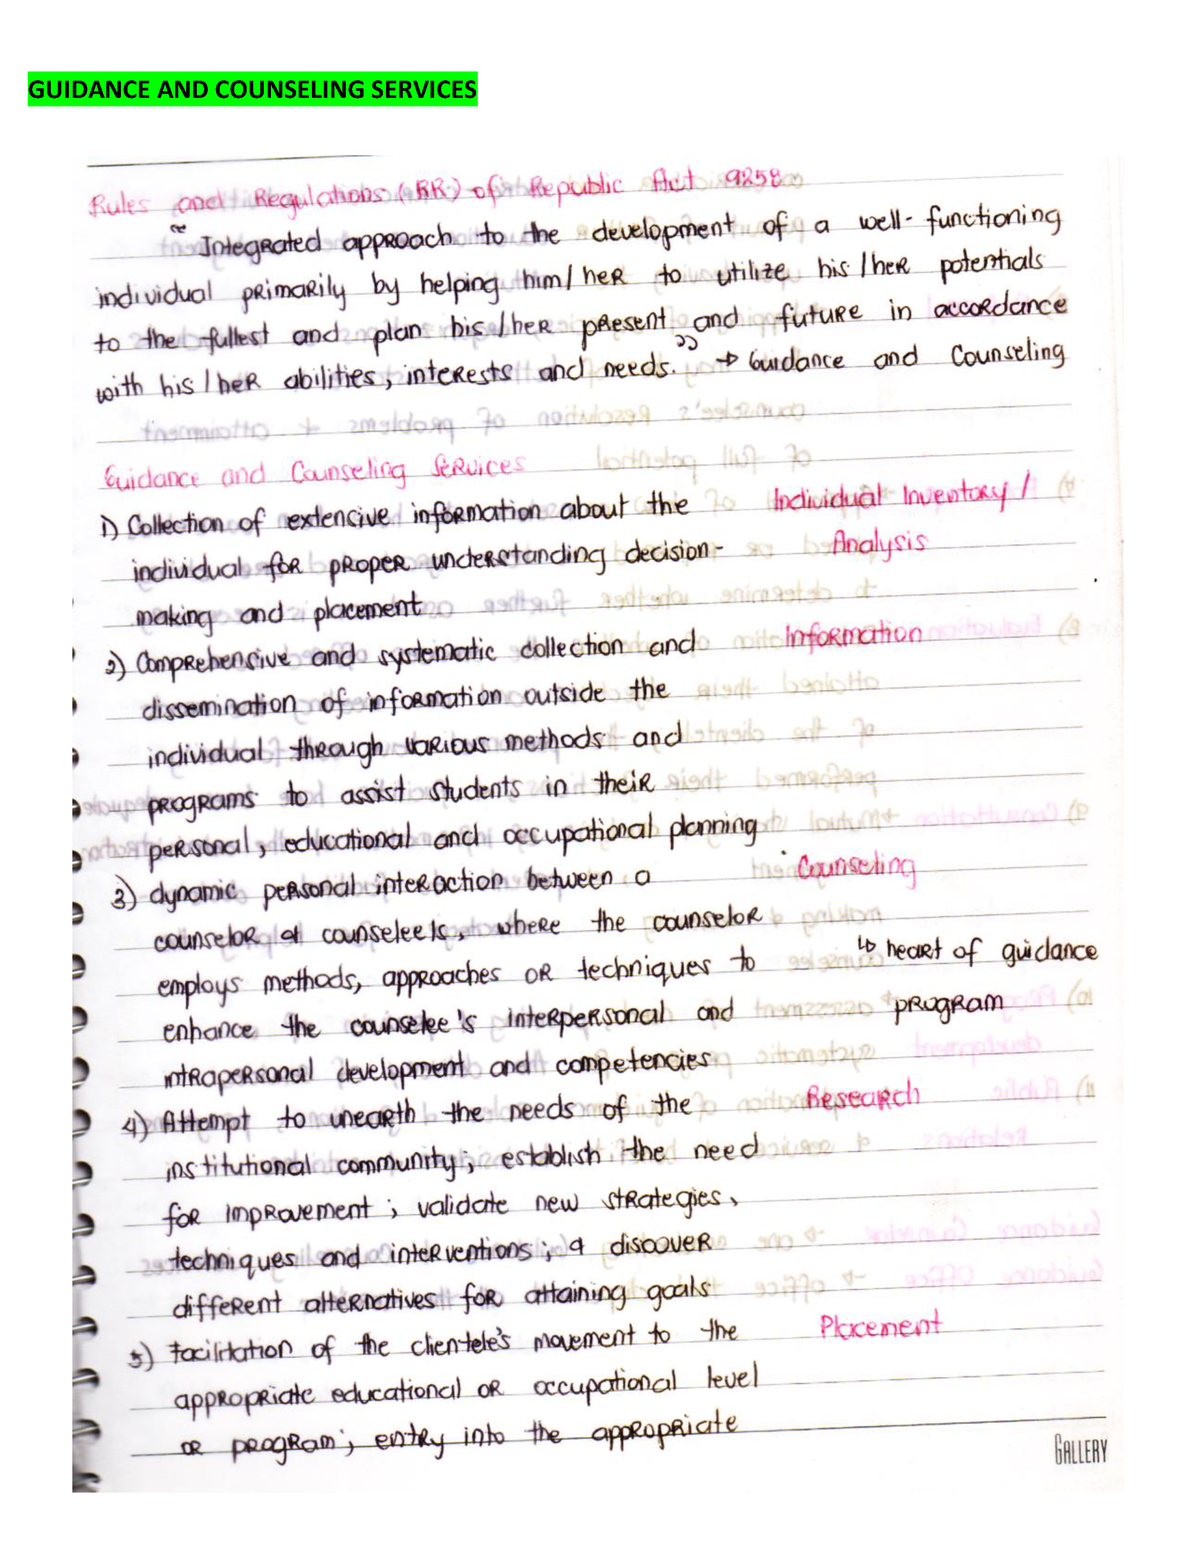 GUIDANCE AND COUNSELING SERVICES
Rules and Regulations (RR) of Republic Act 9258
"Integrated approach to the development of a well-functioning
individual primarily by helping him/her to utilize his/her potentials
to the fullest and plan his/her present and future in accordance
with his/her abilities, interests and needs." → Guidance and Counseling
Guidance and Counseling Services
1) Collection of extensive information about the Individual Inventory /
individual for proper understanding decision- Analysis
making and placement
2) Comprehensive and systematic collection and Information
dissemination of information outside the
individual through various methods and
programs to assist students in their
personal, educational and occupational planning
3) dynamic personal interaction between a Counseling
counselor & counselee/s, where the counselor
employs methods, approaches or techniques to ↳ heart of guidance
enhance the counselee's interpersonal and program
intrapersonal development and competencies
4) Attempt to unearth the needs of the Research
institutional community; establish the need
for improvement; validate new strategies,
techniques and interventions; & discover
different alternatives for attaining goals
5) Facilitation of the clientele's movement to the Placement
appropriate educational or occupational level
or program; entry into the appropriate
GALLERY